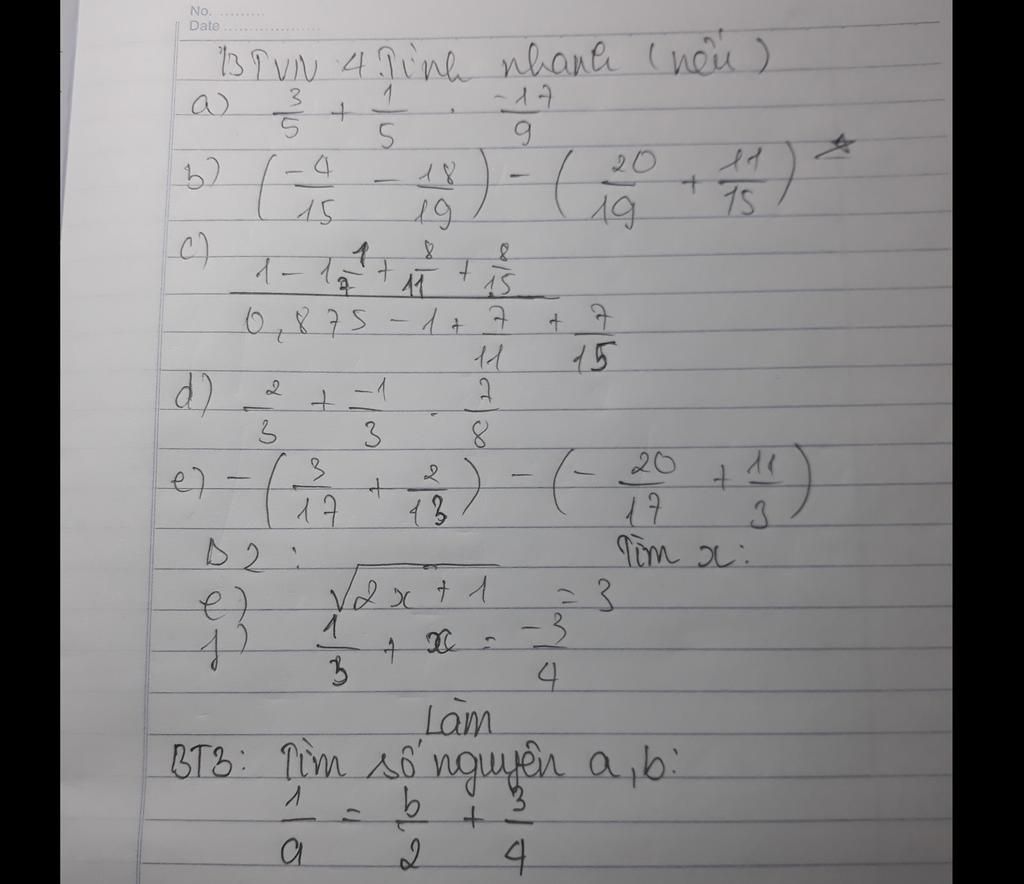 No. .........
Date ...................
BTVN 4. Tính nhanh (nếu)
a) 3/5 + 1/5 . -17/9
b) (-4/15 - 18/19) - (20/19 + 11/15)
c) (1 - 1 1/7 + 8/11 + 8/15) / (0,875 - 1 + 7/11 + 7/15)
d) 2/3 + -1/3 . 7/8
e) -(3/17 + 2/13) - (-20/17 + 11/3)
B2: Tìm x:
e) √(2x + 1) = 3
f) 1/3 + x = -3/4
Làm
BT3: Tìm số nguyên a, b:
1/a = b/2 + 3/4